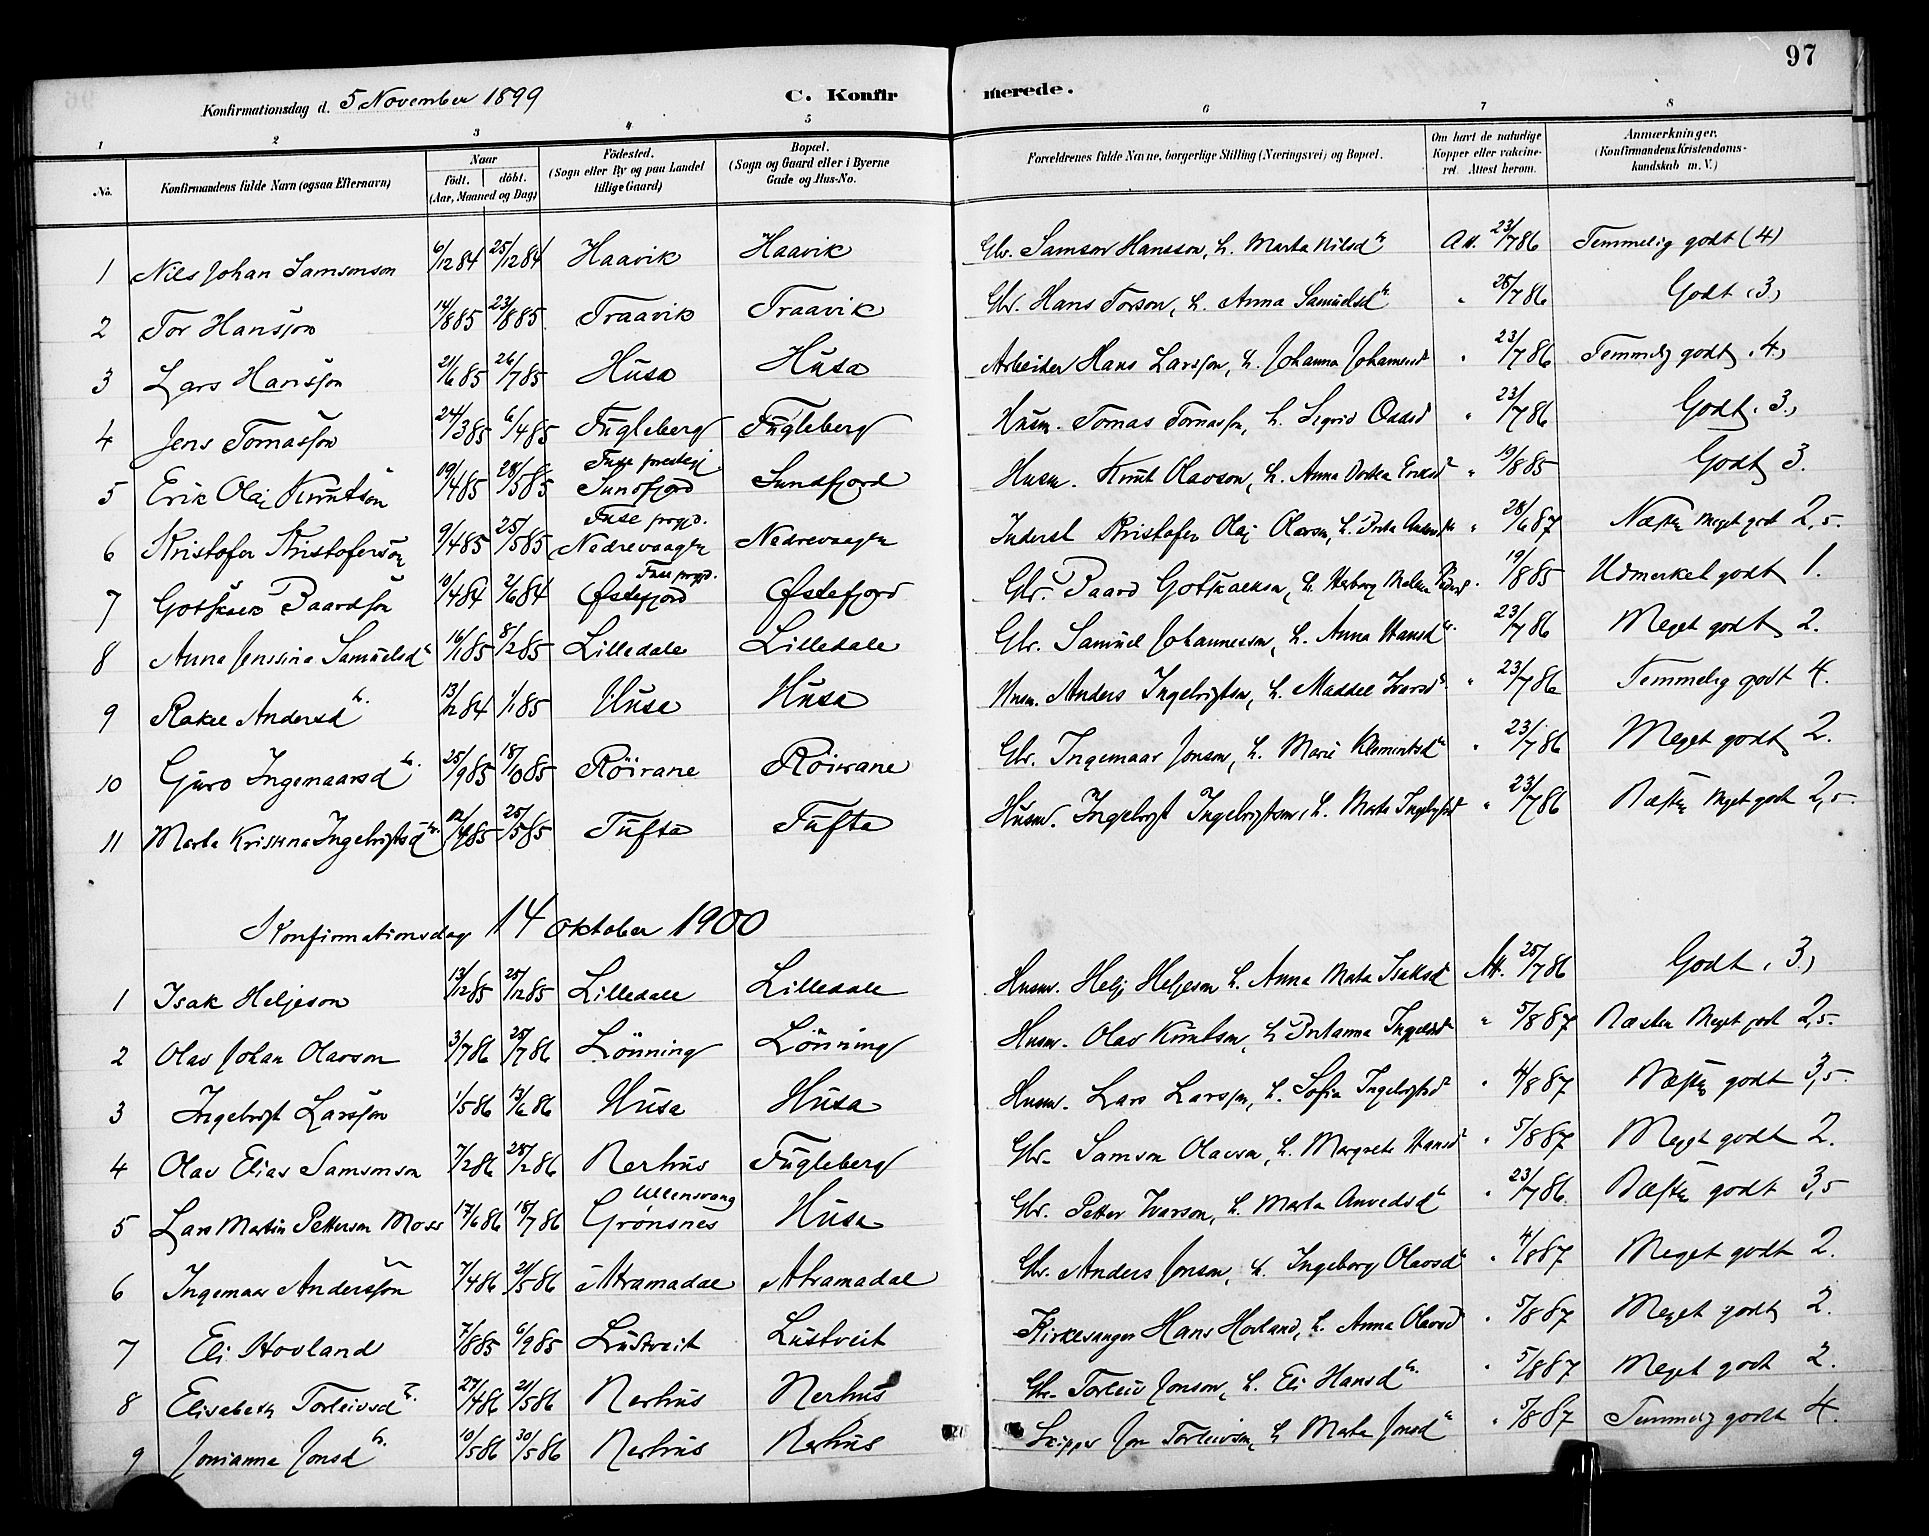 97
Konfirmationsdag d. 5 November 1899 C. Konfirmerede.
1 2 3 4 5 6 7 8
No. Konfirmandens fulde Navn (ogsaa Efternavn) Naar født. døbt. (Aar, Maaned og Dag) Födested. (Sogn eller By og paa Landet tillige Gaard) Bopæl. (Sogn og Gaard eller i Byerne Gade og Hus-No. Forældrenes fulde Navne, borgerlige Stilling (Næringsvei) og Bopæl. Om havt de naturlige Kopper eller vaccineret. Attest herom. Anmærkninger. (Konfirmandens Kristendomskundskab m. V.)
1 Nils Johan Samsonson 6/12 84 25/12 84 Haavik Haavik Gbr. Samson Hansson, h. Marta Nilsdr Att. 23/7 86 Temmelig godt (4)
2 Tor Hansson 14/8 85 23/8 85 Traavik Traavik Gbr. Hans Torson, h. Anna Samuelsdr " 26/7 86 Godt (3)
3 Lars Hansson 21/6 85 26/7 85 Husa Husa Arbeider Hans Larsson, h. Johanna Johannesd " 23/7 86 Temmelig godt (4)
4 Jens Tomasson 24/3 85 6/4 85 Fugleberg Fugleberg Husm. Tomas Tomasson, h. Sigrid " 23/7 86 Godt (3)
5 Erik Olaj Knutson 19/4 85 28/5 85 Fuse prestegj Sundfjord Sundfjord Husm. Knut Olavson, h. Anna Dortea Eriksd " 19/8 85 Godt 3.
6 Kristofer Kristoferson 9/4 85 25/5 85 Fuse prgjd. Nedrevaagen Nedrevaagen Inderst Kristofer Olaj Olavson, h. " 28/6 87 Næsten Meget godt 2,5.
7 Gotskalk Baardson 10/4 84 2/6 84 Fuse prgjd. Østefjord Østefjord Gbr. Baard Gotskalkson, h. 19/8 85 Udmerket godt 1.
8 Anna Jensina Samuelsdr 16/1 85 8/2 85 Lilledale Lilledale Gbr. Samuel Johanneson, h. Anna Hansdr. " 23/7 86 Meget godt 2.
9 Rakel Andersdr. 13/12 84 1/1 85 Husa Husa Husm. Anders Ingebrigtson, h. Maddel Iversdr " 23/7 86 Temmelig godt 4.
10 Guro Ingemaarsdr. 25/9 85 18/10 85 Röirane Röirane Gbr. Ingemaar Jonson, h. Marie Klementsdr " 23/7 86 Meget godt 2.
11 Marta Kristina Ingebrigtsdr. 12/4 85 25/5 85 Tufta Tufta Husm. Ingebrigt Ingebrigtson, h. Marta Ingebrigtsd " 23/7 86 Næsten meget godt 2,5.
Konfirmationsdag 14 Oktober 1900
1 Isak Heljeson 13/12 85 25/12 85 Lilledale Lilledale Husm. Helje Heljeson h. Anna Marta Isaksd Att. 25/7 86 Godt (3)
2 Olav Johan Olavson 3/7 86 25/7 86 Lönning Lönning Husm. Olav Knutson, h. " 5/8 87 Næsten Meget godt 2,5.
3 Ingebrigt Larsson 1/5 86 13/6 86 Husa Husa Husm. Lars Larsson, h. Sofia Ingebrigtsd " 4/8 87 Næsten godt 3,5.
4 Olav Elias Samsonson 7/2 86 28/2 86 Nerhus Fugleberg Gbr. Samson Olavson, h. Margrete Hansdr " 5/8 87 Meget godt 2.
5 Lars Martin Petterson Moss 17/6 86 18/7 86 Ullensvang Grönsnes Husa Gbr. Petter Ivarson, h. Marta Amundsdr " 23/7 86. Næsten godt 3,5
6 Ingemaar Andersson 7/4 86 21/5 86 Akramadal Akramadal Gbr. Anders Jonson, h. Ingeborg Olavsdr " 4/8 87 Meget godt 2.
7 Eli Hovland 7/8 85 6/9 85 Lustveit Lustveit Kirkesanger Hans Hovland, h. Anna Olavsd " 5/8 87 Meget godt 2.
8 Elisabeth Torleivsdr. 27/4 86 21/5 86 Nerhus Nerhus Gbr. Torleiv Jonson, h. Eli Hansdr. " 5/8 87 Meget godt 2.
9 Jonianna Jonsdr. 10/5 86 30/5 86 Nerhus Nerhus Skipper Jon Torleivson, h. Marta Jonsdr " 5/8 87 Temmelig godt 4.